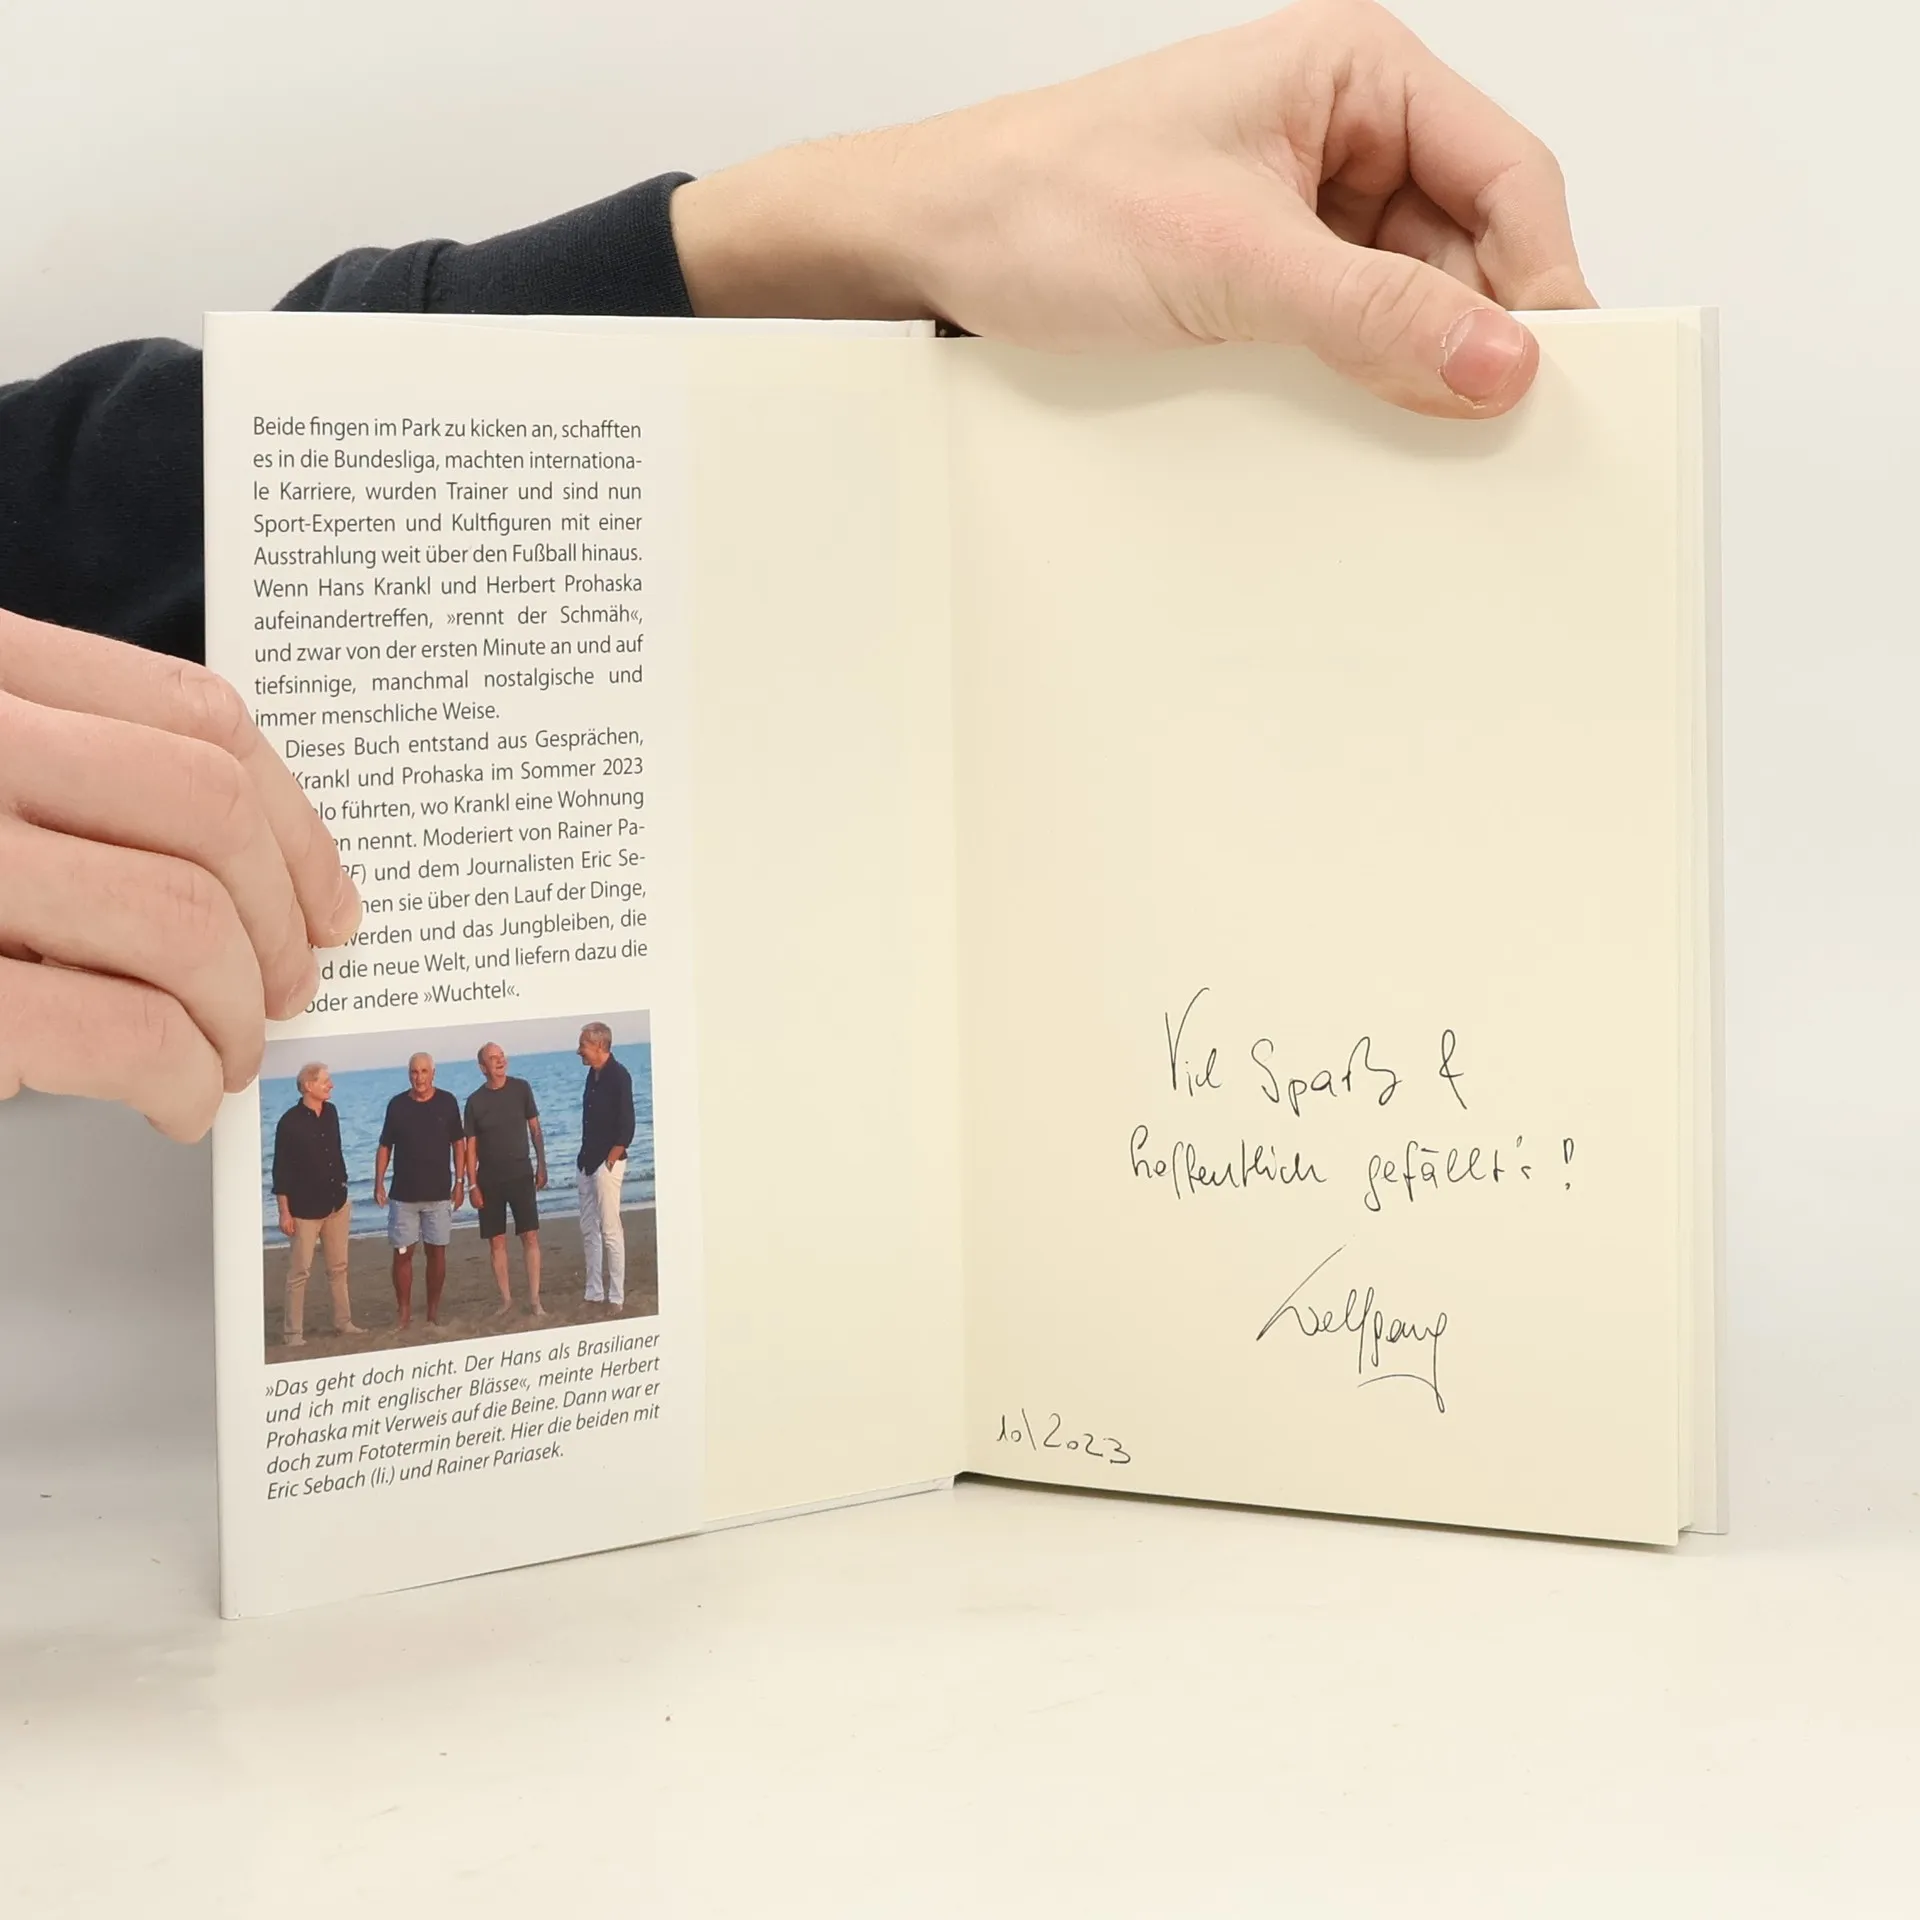 Beide fingen im Park zu kicken an, schafften
es in die Bundesliga, machten internationa-
le Karriere, wurden Trainer und sind nun
Sport-Experten und Kultfiguren mit einer
Ausstrahlung weit über den Fußball hinaus.
Wenn Hans Krankl und Herbert Prohaska
aufeinandertreffen, »rennt der Schmäh«,
und zwar von der ersten Minute an und auf
tiefsinnige, manchmal nostalgische und
immer menschliche Weise.
Dieses Buch entstand aus Gesprächen,
Krankl und Prohaska im Sommer 2023
führten, wo Krankl eine Wohnung
nennt. Moderiert von Rainer Pa-
und dem Journalisten Eric Se-
sie über den Lauf der Dinge,
werden und das Jungbleiben, die
die neue Welt, und liefern dazu die
oder andere »Wuchtel«.
»Das geht doch nicht. Der Hans als Brasilianer
und ich mit englischer Blässe«, meinte Herbert
Prohaska mit Verweis auf die Beine. Dann war er
doch zum Fototermin bereit. Hier die beiden mit
Eric Sebach (li.) und Rainer Pariasek.
Viel Spaß &
hoffentlich gefällt's!
Wolfgang
10\2023